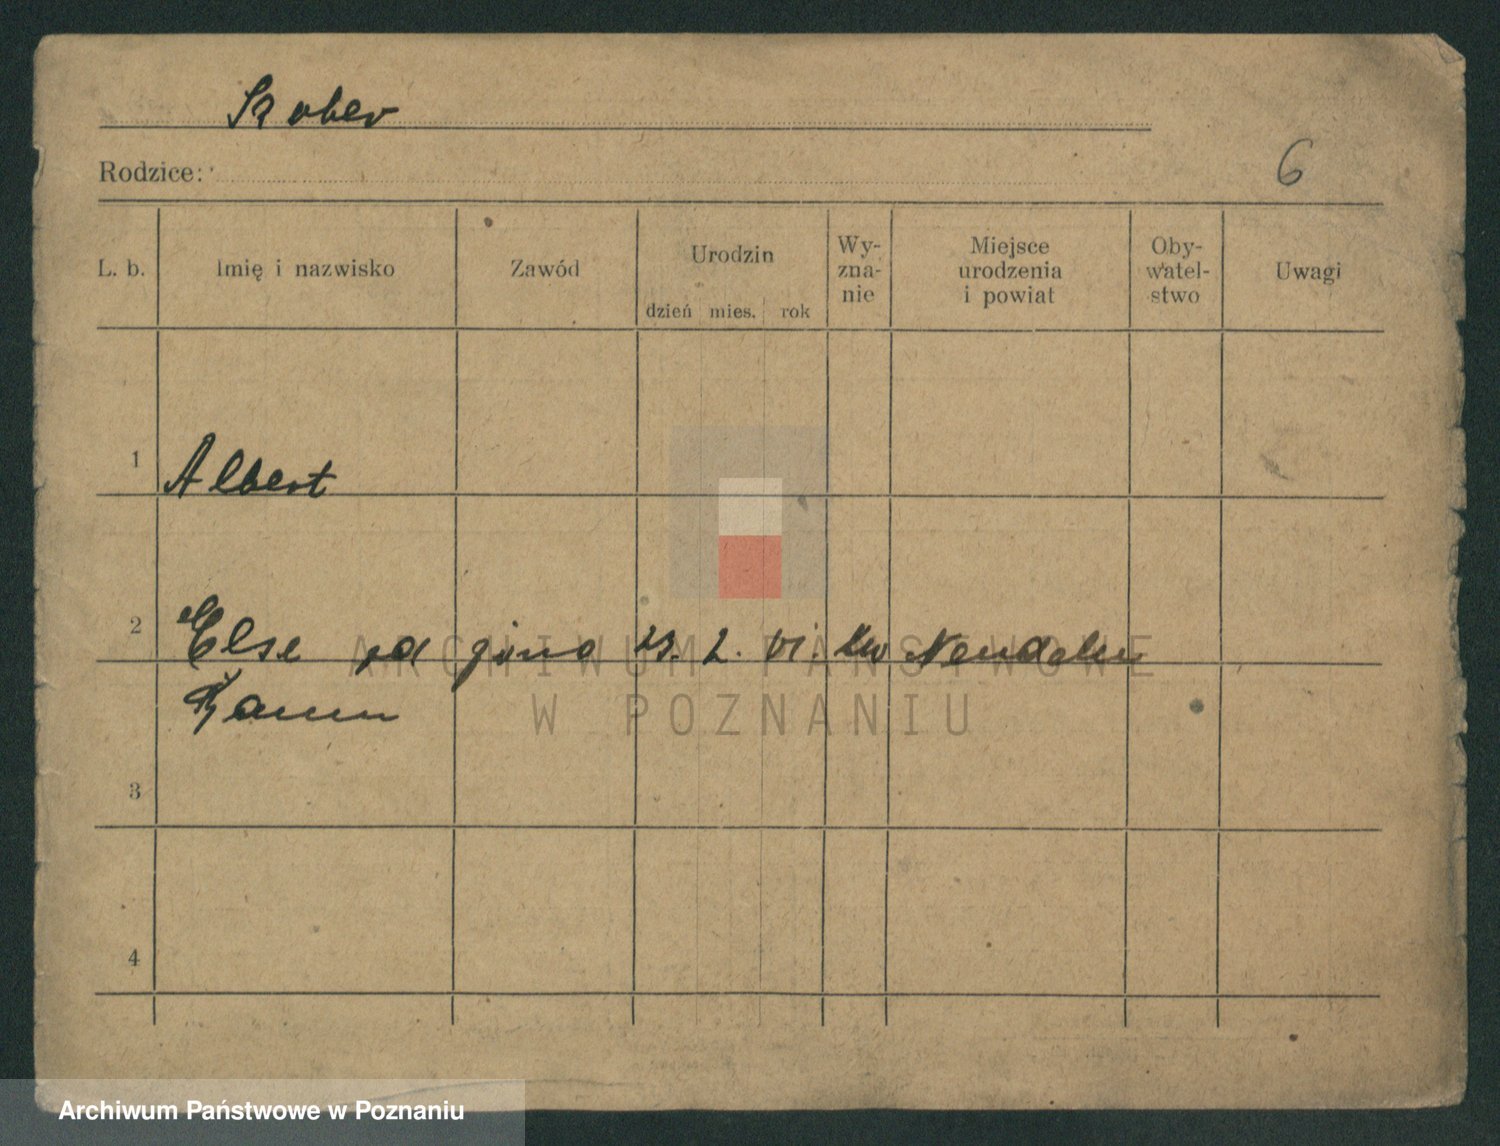 Rodzice:
6
L. b.
Imię i nazwisko
Zawód
Urodzin
dzień mies. rok
Wy-
zna-
nie
Miejsce
urodzenia
i powiat
Oby-
watel-
stwo
Uwagi
1 Albert
2 Else 23. 2.
3
4
ARCHIWUM PAŃSTWOWE
W POZNANIU
Archiwum Państwowe w Poznaniu